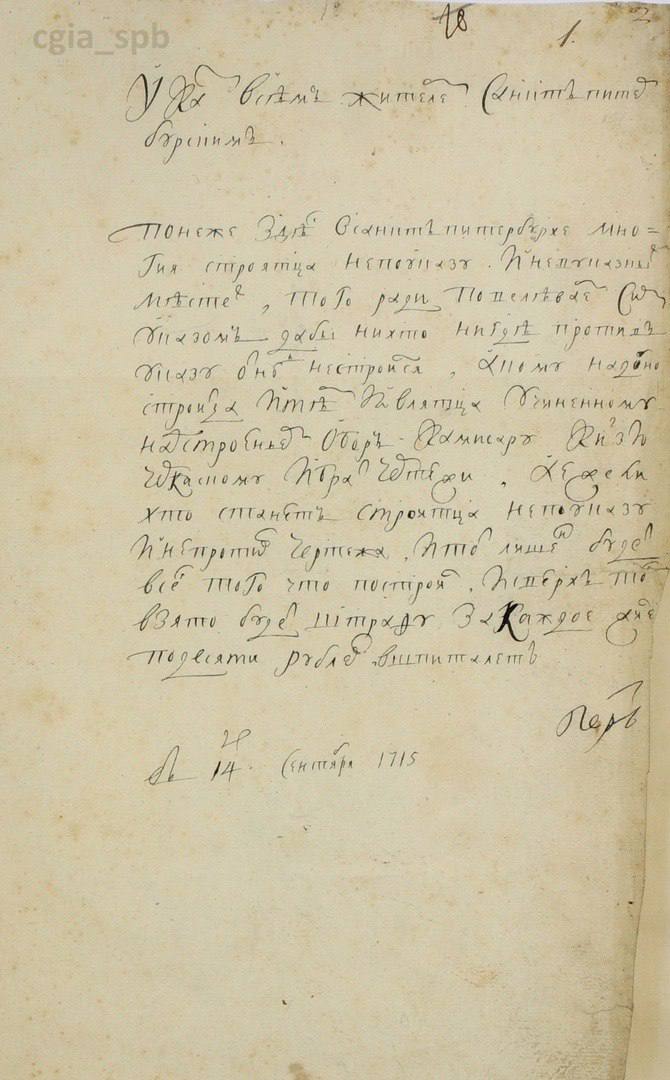 cgia_spb
1.
2
Ука всѣмъ жителе Санктъпите
бурскимъ.
понеже здѣ Всанктъпитербурхе мно=
гия строятца непоуказу. И неуказны
мѣсте, того ради Повелѣвае Си
указомъ дабы нихто нигдѣ противъ
указу нестроися, Акому надобно
строица И тѣ Являтца Учиненному
надстроень Оборъ Камисару Кнзю
Черкаскому Ибра чертежи, Аежели
хто станетъ строятца непоуказу
Инепротив чертежа, Ито лише буде
все того что построи, Исверхъ то
взято буде штрафу За каждое
подесяти рубле вшпиталетъ
Петръ
Въ 14 Сентября 1715